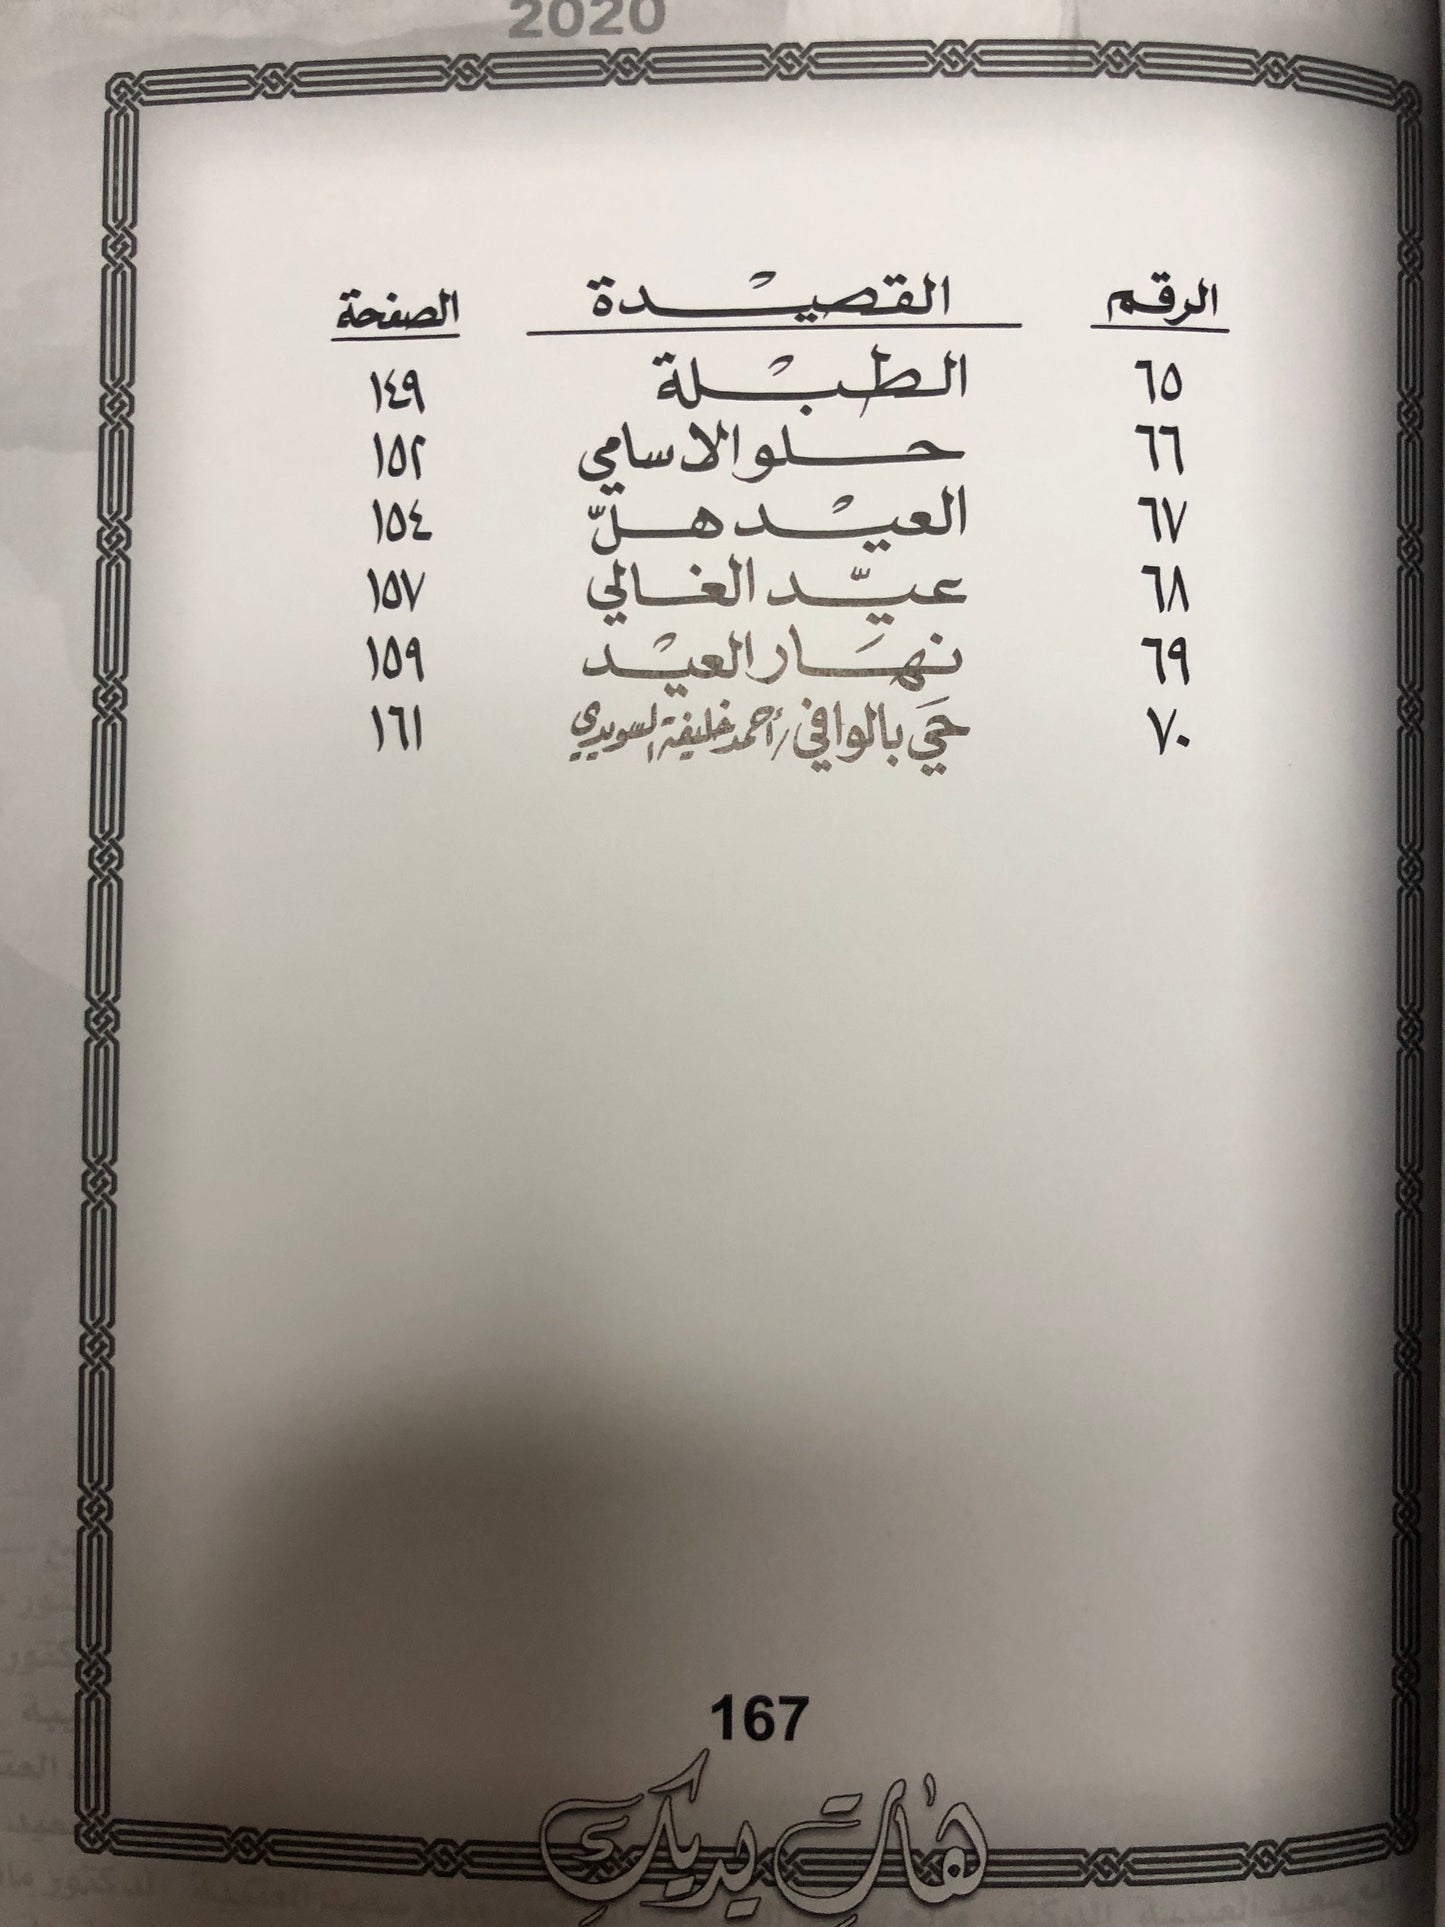 2020
الرقم القصيْدة الصفحة
٦٥ الطبْلة ١٤٩
٦٦ حلو الاسامي ١٥٢
٦٧ العيْد هلّ ١٥٤
٦٨ عيّد الغالي ١٥٧
٦٩ نهَار العيْد ١٥٩
٧٠ حَي بالوافي / أحمد خليفة السويدي ١٦١
167
هات يديك